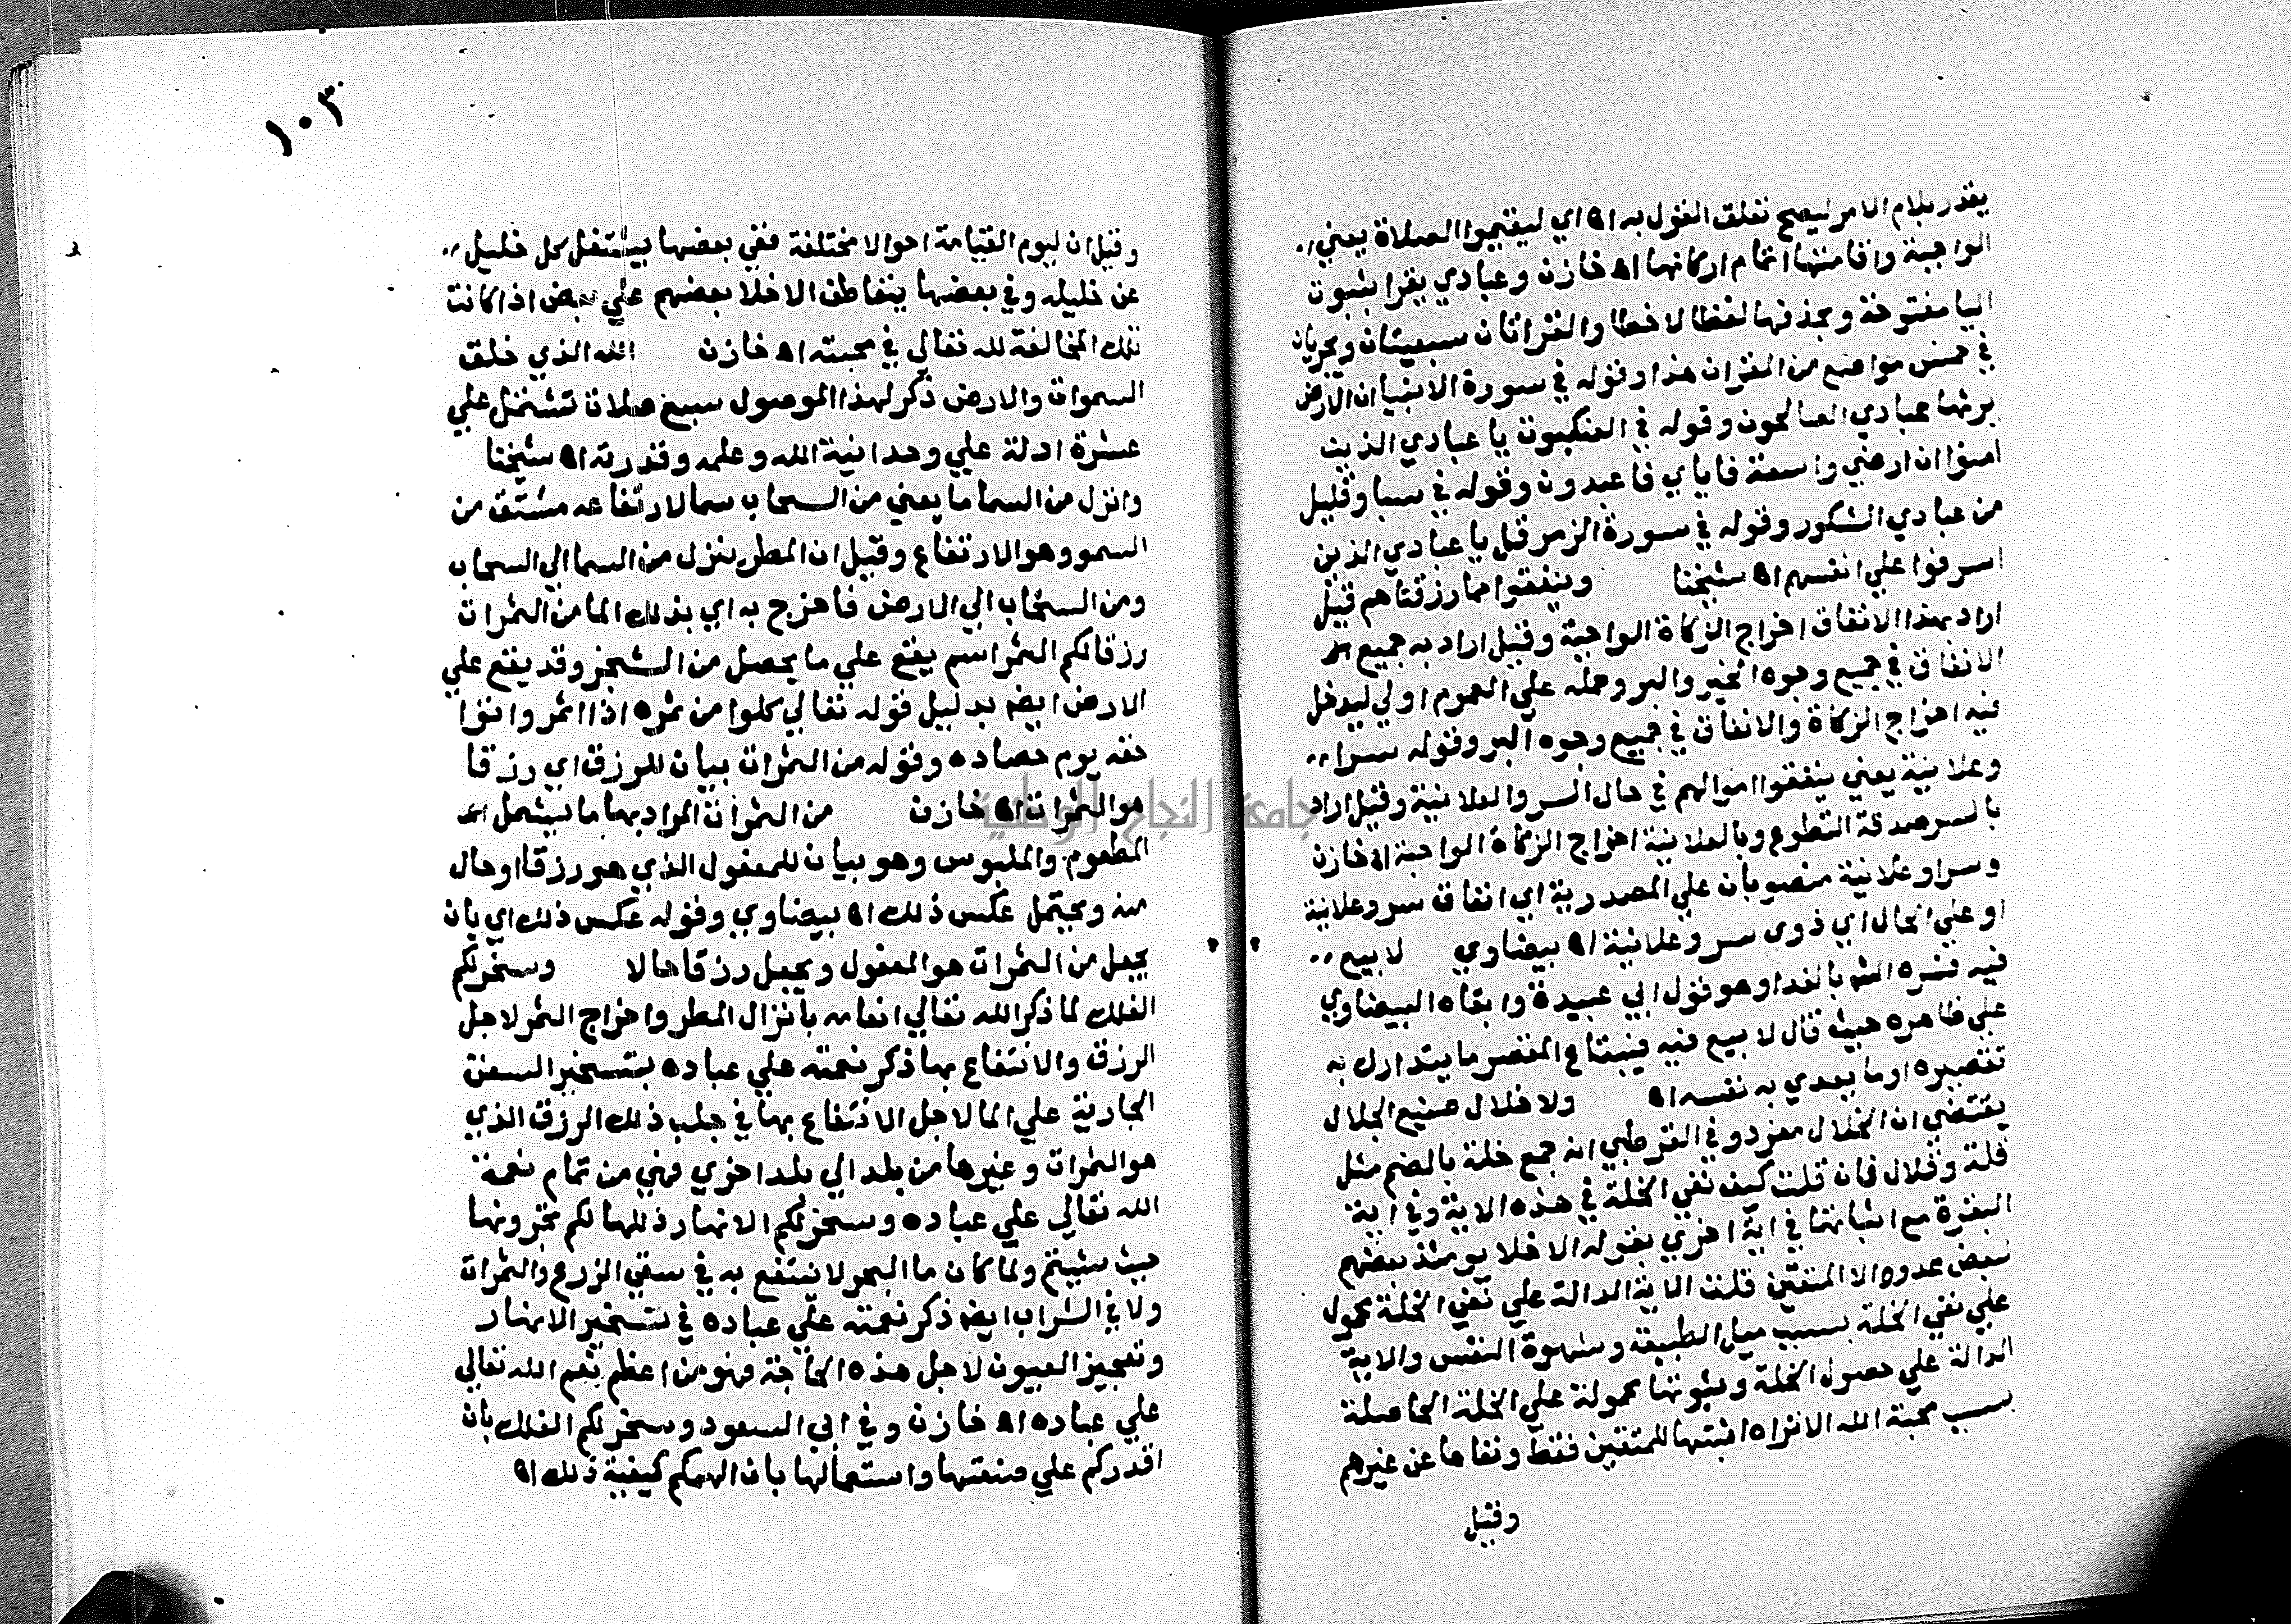 يقدر بلام الامر ليصح تعلق القول به اه اي ليقيموا الصلاة يعني
الواجبة واقامتها اتمام اركانها اه خازن وعبادي يقرا بثبوت
اليا مفتوحة وبحذفها لفظا لا خطا والقراتان سبعيتان ويجريان
في خمس مواضع من القران هذا وقوله في سورة الانبيا ان الارض
يرثها عبادي الصالحون وقوله في العنكبوت يا عبادي الذين
امنوا ان ارضي واسعة فاياي فاعبدون وقوله في سبا وقليل
من عبادي الشكور وقوله في سورة الزمر قل يا عبادي الذين
اسرفوا علي انفسهم اه شيخنا وينفقوا مما رزقناهم قيل
اراد بهذا الانفاق اخراج الزكاة الواجبة وقيل اراد به جميع
الانفاق في جميع وجوه الخير والبر وحمله علي العموم اولي ليدخل
فيه اخراج الزكاة والانفاق في جميع وجوه البر وقوله سرا
وعلانية يعني ينفقوا اموالهم في حال السر والعلانية وقيل اراد
بالسر صدقة التطوع وبالعلانية اخراج الزكاة الواجبة اه خازن
وسرا وعلانية منصوبان علي المصدرية اي انفاق سر وعلانية
او علي الحال اي ذوي سر وعلانية اه بيضاوي لا بيع
فيه فسره الشم بالفدا وهو قول ابي عبيدة وابقاه البيضاوي
علي ظاهره حيث قال لا بيع فيه فيبتاع المقصر ما يتدارك به
تقصيره او ما يفدي به نفسه اه ولا خلال صنيع الجلال
يقتضي ان الخلال مفرد وفي القرطبي انه جمع خلة بالضم مثل
قلة وقلال فان قلت كيف نفي الخلة في هذه الاية وفي اية
البقرة مع اثباتها في اية اخري بقوله الاخلا يومئذ بعضهم
لبعض عدو الا المتقين قلت الاية الدالة علي نفي الخلة محمول
علي نفي الخلة بسبب ميل الطبيعة وشهوة النفس والاية
الدالة علي حصول الخلة وثبوتها محمولة علي الخلة الحاصلة
بسبب محبة الله الا تراه اثبتها للمتقين فقط ونفاها عن غيرهم
وقيل
١٠٣
وقيل ان ليوم القيامة احوالا مختلفة ففي بعضها يشتغل كل خليل
عن خليله وفي بعضها يتعاطف الاخلا بعضهم علي بعض اذا كانت
تلك المخالفة لله تعالي في محبته اه خازن الله الذي خلق
السموات والارض ذكر لهذا الموصول سبع صلات تشتمل علي
عشرة ادلة علي وحدانية الله وعلمه وقدرته اه شيخنا
وانزل من السما ما يعني من السحاب سما لارتفاعه مشتق من
السمو وهو الارتفاع وقيل ان المطر ينزل من السما الي السحاب
ومن السحاب الي الارض فاخرج به اي بذلك الما من الثمرات
رزقا لكم الثمر اسم يقع علي ما يحصل من الشجر وقد يقع علي
الارض ايضا بدليل قوله تعالي كلوا من ثمره اذا اثمر واتوا
حقه يوم حصاده وقوله من الثمرات بيان للرزق اي رزقا
هو الثمرات اه خازن من الثمرات المراد بها ما يشمل
المطعوم والملبوس وهو بيان للمفعول الذي هو رزقا او حال
منه ويحتمل عكس ذلك اه بيضاوي وقوله عكس ذلك اي بان
يجعل من الثمرات هو المفعول ويجعل رزقا حالا وسخر لكم
الفلك لما ذكر الله تعالي انعامه بانزال المطر واخراج الثمر لاجل
الرزق والانتفاع بها ذكر نعمته علي عباده بتسخير السفن
الجارية علي الما لاجل الانتفاع بها في جلب ذلك الرزق الذي
هو الثمرات وغيرها من بلد الي بلد اخري فهي من تمام نعمة
الله تعالي علي عباده وسخر لكم الانهار ذللها لكم تجرونها
حيث شيتم ولما كان ما البحر لا ينتفع به في سقي الزرع والثمرات
ولا في الشراب ايضا ذكر نعمته علي عباده في تسخير الانهار
وتفجير العيون لاجل هذه الحاجة فهو من اعظم نعم الله تعالي
علي عباده اه خازن وفي ابي السعود وسخر لكم الفلك بان
اقدركم علي صنعتها واستعمالها بان الهمكم كيفية ذلك اه
جامعة النجاح الوطنية